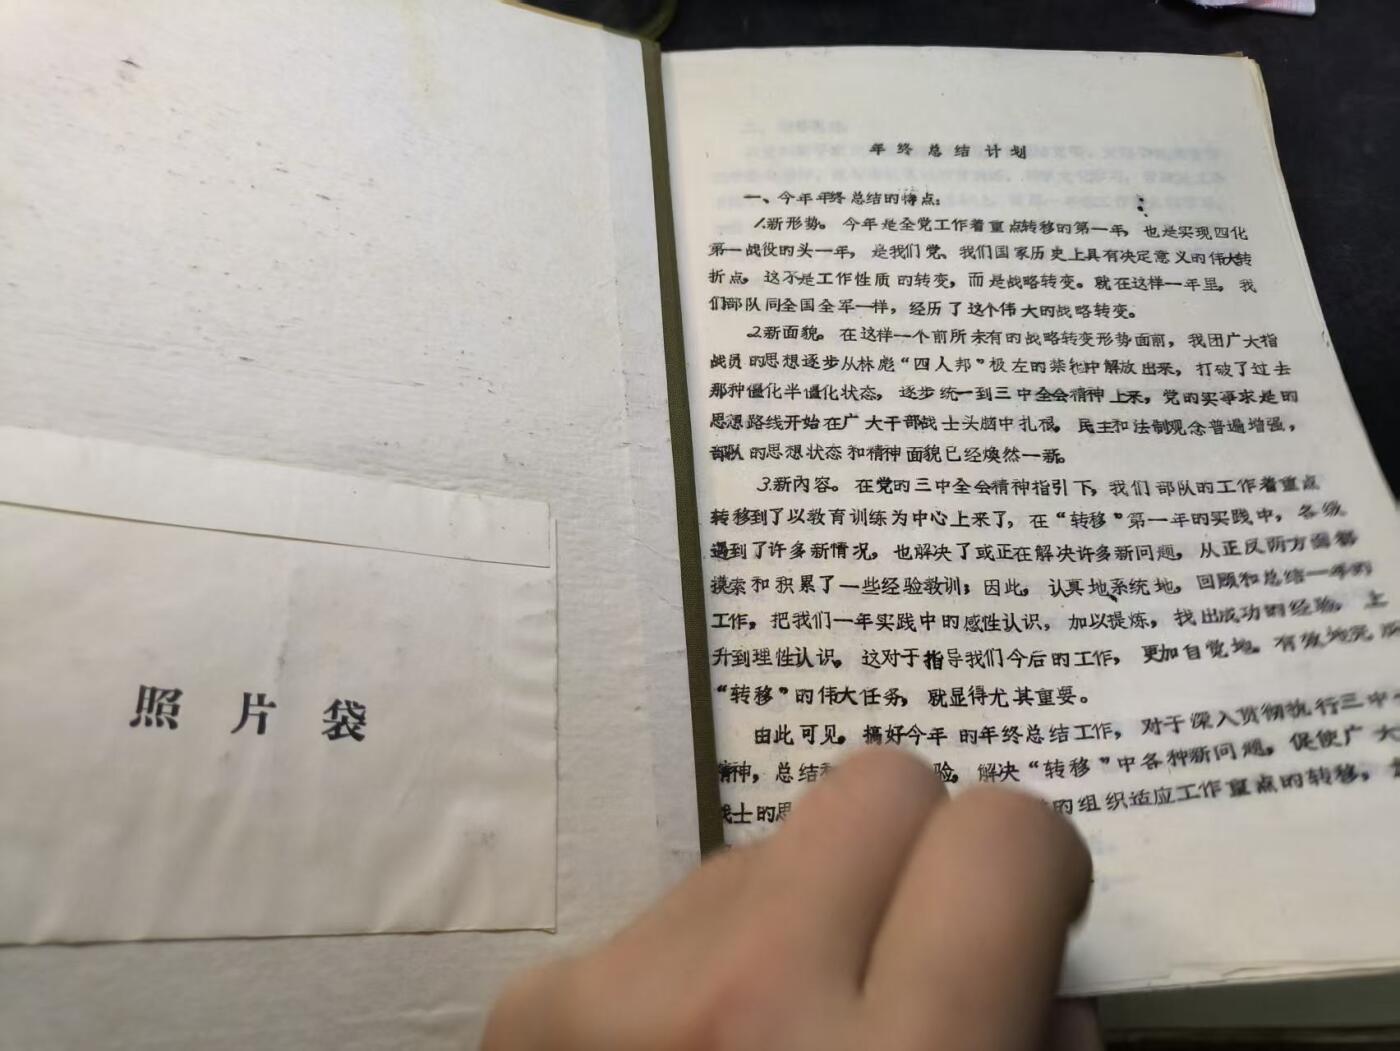 照片袋
年终总结计划
一、今年年终总结的特点：
1.新形势。今年是全党工作着重点转移的第一年，也是实现四化
第一战役的头一年，是我们党、我们国家历史上具有决定意义的伟大转
折点，这不是工作性质的转变，而是战略转变。就在这样一年里，我
们部队同全国全军一样，经历了这个伟大的战略转变。
2.新面貌。在这样一个前所未有的战略转变形势面前，我团广大指
战员的思想逐步从林彪“四人邦”极左的禁锢中解放出来，打破了过去
那种僵化半僵化状态，逐步统一到三中全会精神上来，党的实事求是的
思想路线开始在广大干部战士头脑中扎根，民主和法制观念普遍增强，
部队的思想状态和精神面貌已经焕然一新。
3.新内容。在党的三中全会精神指引下，我们部队的工作着重点
转移到了以教育训练为中心上来了，在“转移”第一年的实践中，各级
遇到了许多新情况，也解决了或正在解决许多新问题，从正反两方面都
摸索和积累了一些经验教训；因此，认真地系统地，回顾和总结一年的
工作，把我们一年实践中的感性认识，加以提炼，找出成功的经验，上
升到理性认识。这对于指导我们今后的工作，更加自觉地。有效地完
“转移”的伟大任务，就显得尤其重要。
由此可见，搞好今年的年终总结工作，对于深入贯彻执行三中
精神，总结 验，解决“转移”中各种新问题，促使广大
战士的思 的组织适应工作重点的转移，